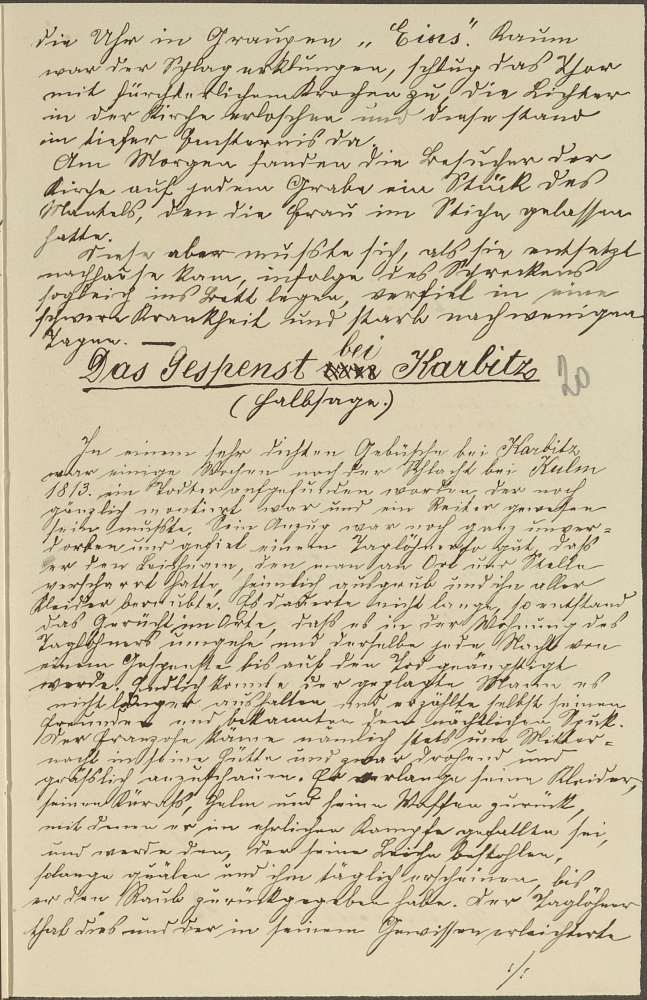 die Uhr in Graupen „Eins". Kaum
war der Schlag verklungen, schlug das Thor
mit fürchterlichem Krachen zu, die Lichter
in der Kirche erloschen und diese stand
in tiefer Finsternis da.
Am Morgen fanden die Besucher der
Kirche auf jedem Grabe ein Stück des
Mantels, den die Frau im Stiche gelassen
hatte.
Diese aber mußste sich, als sie entsetzt
nachhause kam, infolge des Schreckens
sogleich ins Bett legen, verfiel in eine
schwere Krankheit und starb nach wenigen
Tagen. —
Das Gespenst bei Karbitz 20
(Halbsage.)
In einem sehr dichten Gebüsche bei Karbitz
war einige Wochen nach der Schlacht bei Kulm
1813. ein Todter aufgefunden worden, der noch
gänzlich montiert war und ein Reiter gewesen
sein mußste. Sein Anzug war noch ganz unver=
dorben und gefiel einem Taglöhner so gut, daß
er den Leichnam, den man an Ort und Stelle
verscharrt hatte, heimlich ausgrub und ihn aller
Kleider beraubte. Es dauerte nicht lange, so entstand
das Gerücht im Orte, daß es in der Wohnung des
Taglöhners umgehe, und derselbe jede Nacht von
einem Gespenste bis auf den Tod geängstigt
werde. Endlich konnte der geplagte Mann es
nicht länger aushalten und erzählte selbst seinen
Freunden und bekannten den nächtlichen Spuk.
Der Franzose käme nämlich stets um Mitter=
nacht in seine Hütte und zwar drohend und
grässlich anzuschauen. Er verlange seine Kleider,
seinen Küraß, Helm und seine Waffen zurück,
mit denen er im ehrlichen Kampfe gefallen sei,
und werde den, der seine Leiche bestohlen,
solange quälen und ihm täglich erscheinen, bis
er den Raub zurückgegeben habe. Der Taglöhner
that dies und der in seinem Gewissen erleichterte
./.